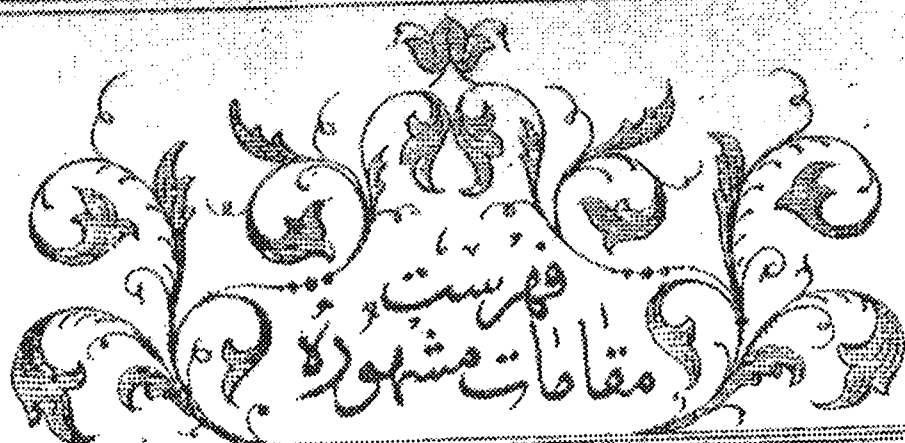 فهرست
مقامات مشهوره